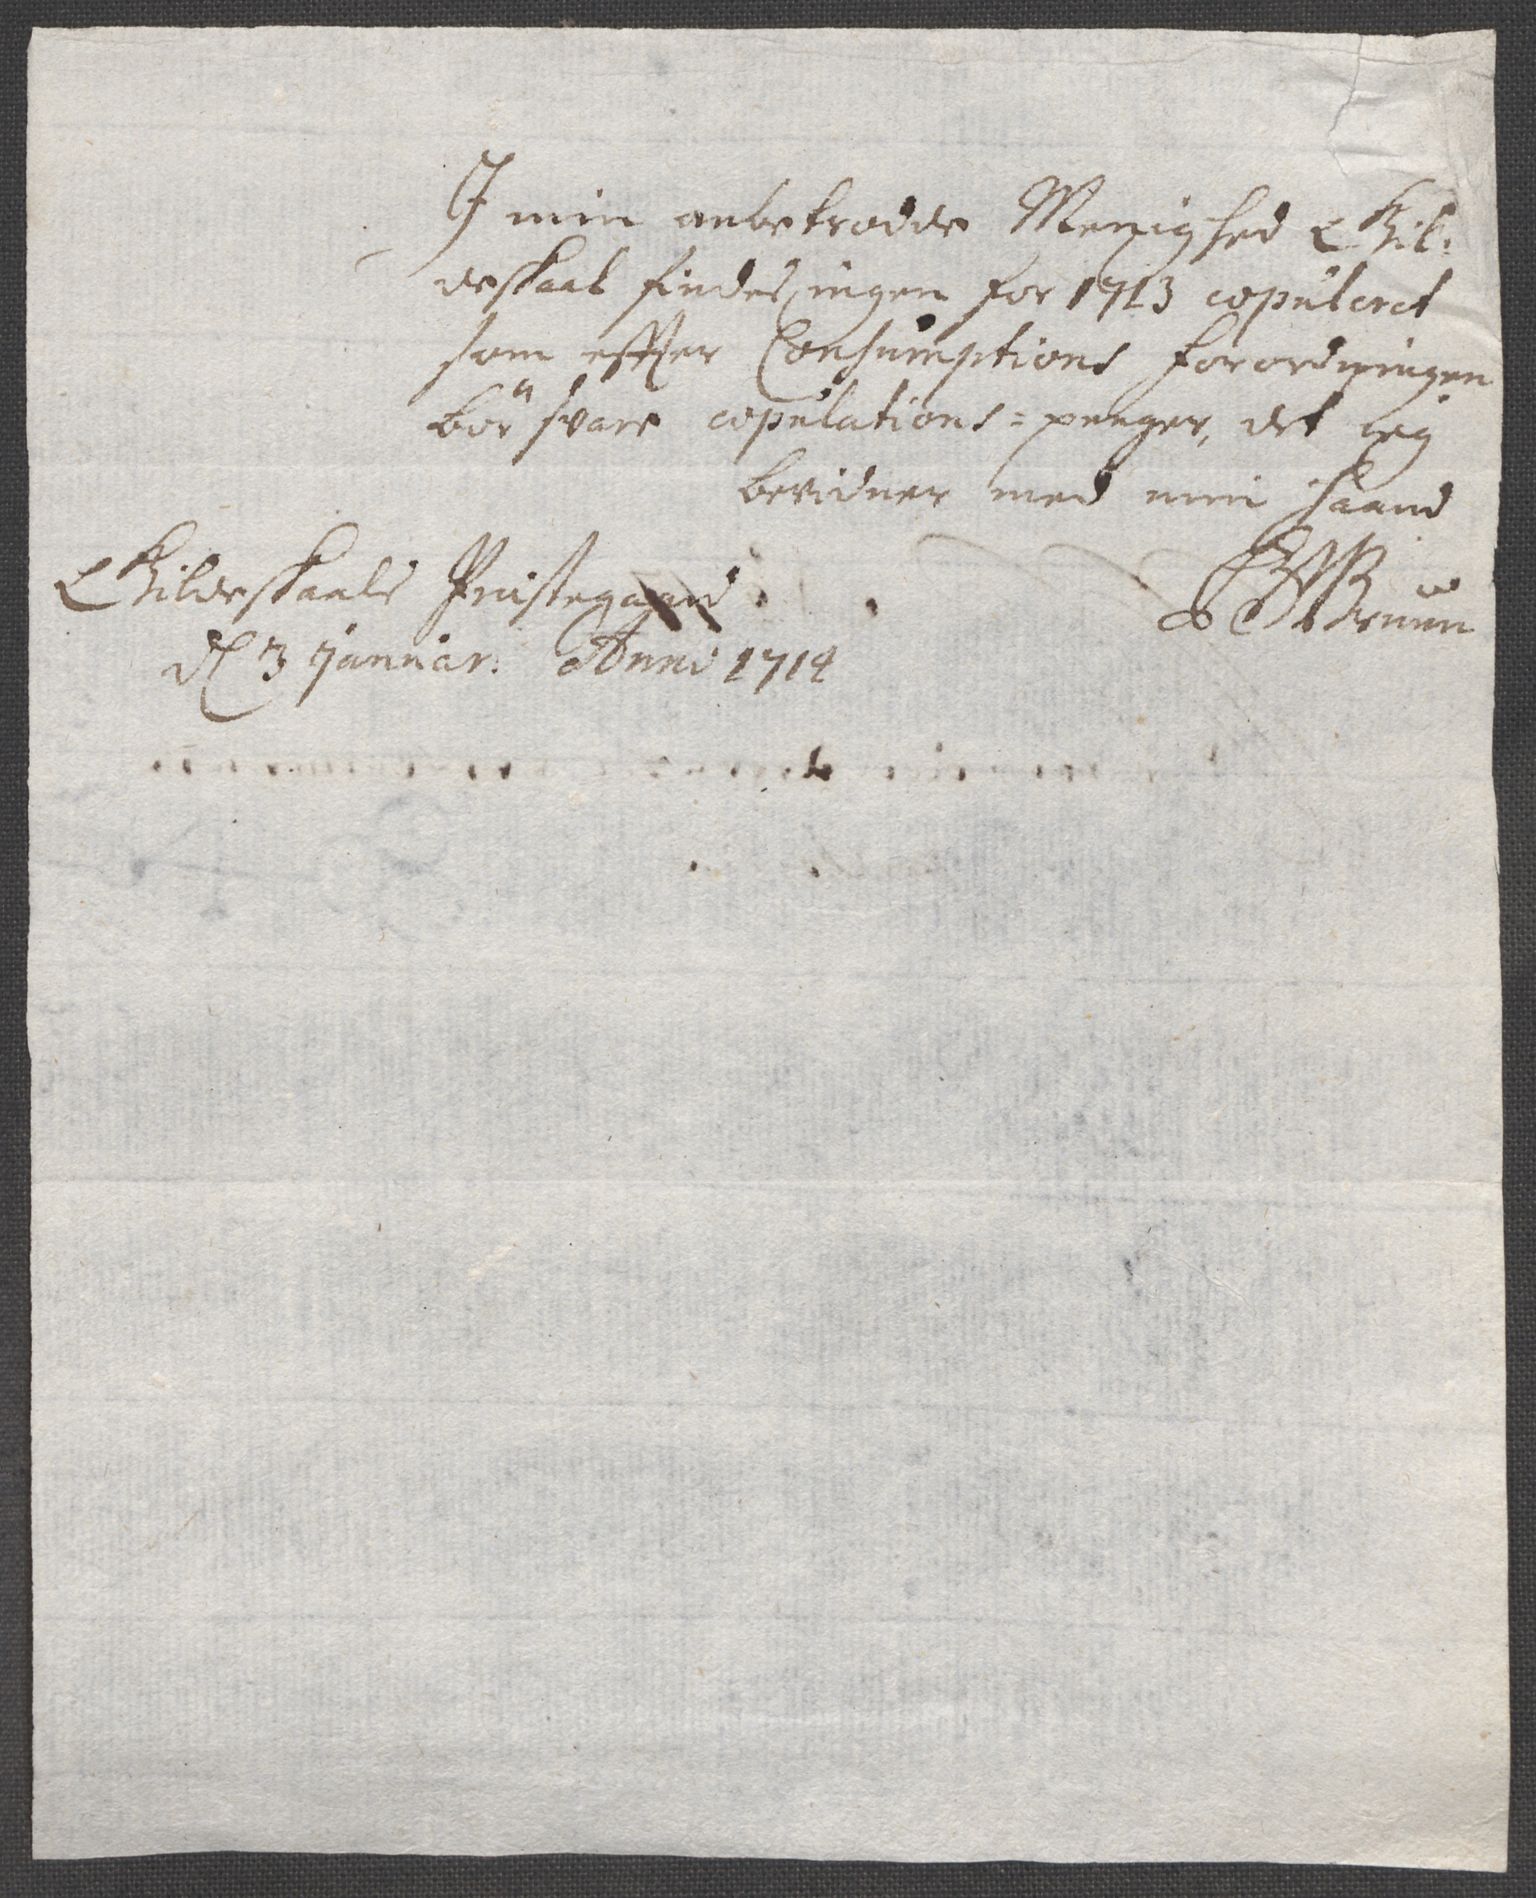 I min anbetrodde Menighed Gil-
deskaal findes ingen for 1713 copuleret
som effter Consumptions forordningen
bör svare copulations-penger, det ieg
bevidner med min haand
Gildeskaals Præstegaard
d 3 januar: Anno 1714
Bruun